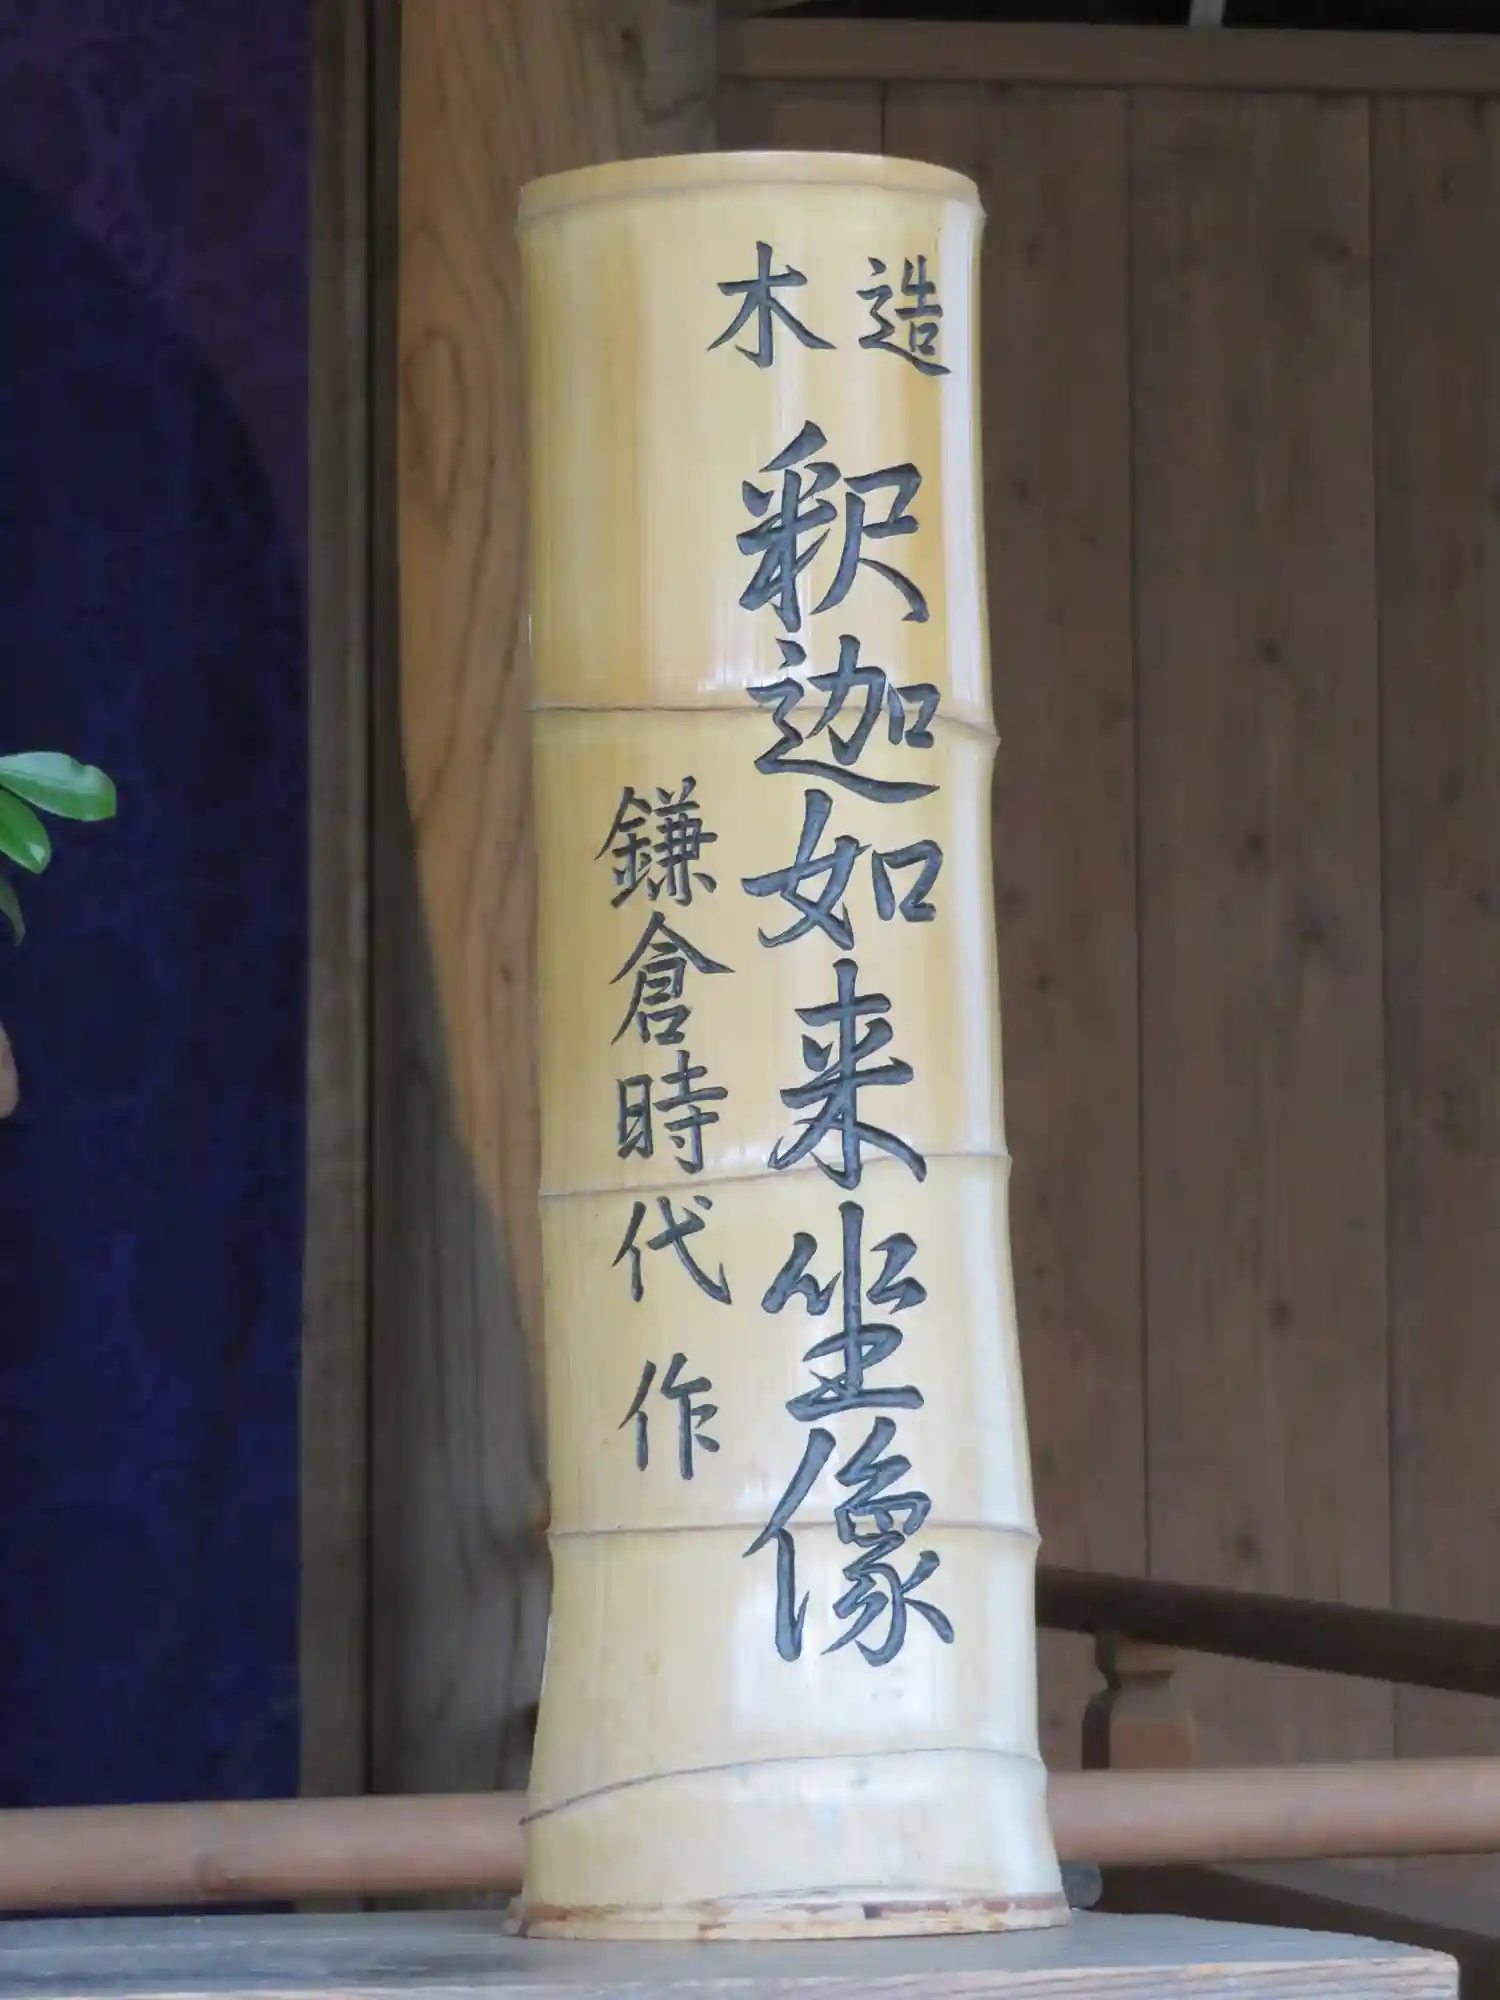 木造
釈迦如来坐像
鎌倉時代 作